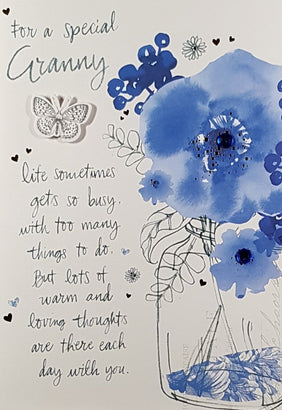 For a special
Granny
life sometimes
gets so busy.
with too many
things to do.
But lots of
warm and
loving thoughts
are there each
day with you.